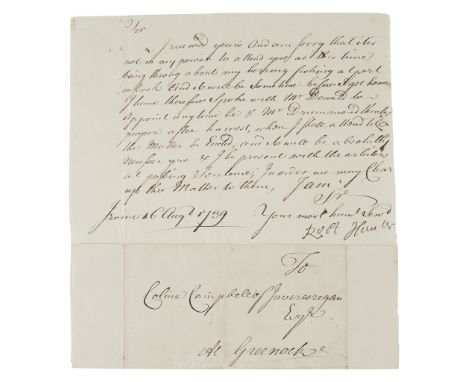 Sir
I received yours And am sorry that it is
not in my power to attend you at this time
being throng about my herring fishing at port
and it will be Sometime before I get home
I have therefore Spoke with Mr Donald to
appoint any time he & Mr Drummond think
proper after harvest, when I shall attend
the Matter be Ended, and it will be absolutely
you & I be present with the arbiters
at passing Sentence, In order we may Clear
up this Matter to them, I am
Sir
Irvine 16 Augt 1739 Your most humb Servt
Robt Hunter
To
Coline Campbele of Inveresregan
Esqr
At Greenock